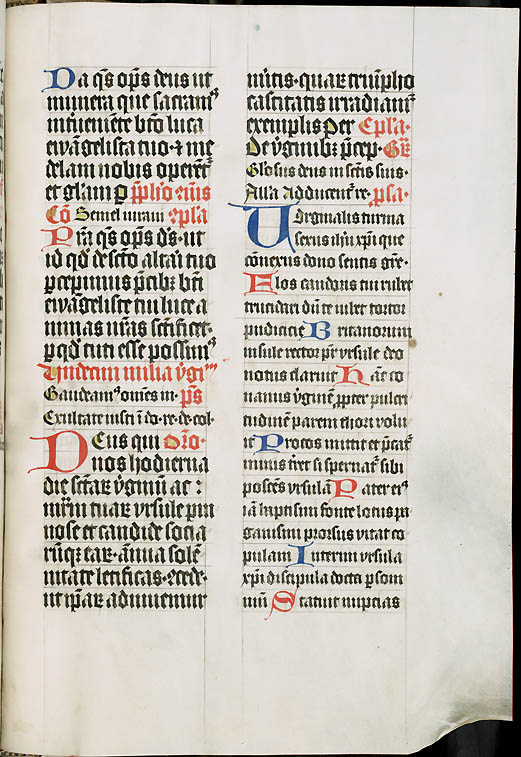 Da qs ops deus ut
munera que sacram9
intueniente bto luca
ewangelista tuo · ⁊ me
delam nobis operent
et gloam p
Co Semel iuraui
Pra qs ops ds · ut
id qd de scto altari tuo
percepimus pcibz bti
ewangeliste tui luce a
nimas nras sctificet ·
p qd tuti esse possim9
Undecim milia vgi
Gaudeam9 omes in · ps
Exultate iusti i do · re · de · col ·
Deus qui Oro ·
nos hodierna
die sctar vginu ac
mrm tuar vrsule pru
nose et candide socia
rumqz ear · annua sole
nitate letificas · 2cede ·
ut ipar adiuuemur
mitis · quar triupho
castitatis irradiam9
exemplis Per Epla ·
De vginibz pcep · Gr
Gliosus deus in sctis suis ·
Alla Adducent re · psa ·
Virginalis turma
sexus ihu xpi que
conexus dono sentis gre ·
Elos candoris tui rubet
trucidari du te iubet tortor
pudicicie Britanorum
insule rector pr vrsule deo
notus claruit Hac co
nanus vgine ppter pulcri
tudine parem thori volu
it Procos mittit et pcat
minis tret si spernat sibi
postes vrsula Pater ei9
ia baptismi fonte lotus pa
ganismi prorsus vitat co
pulam Interim vrsula
xpi discipula docta p som
niu Statuit nuptias